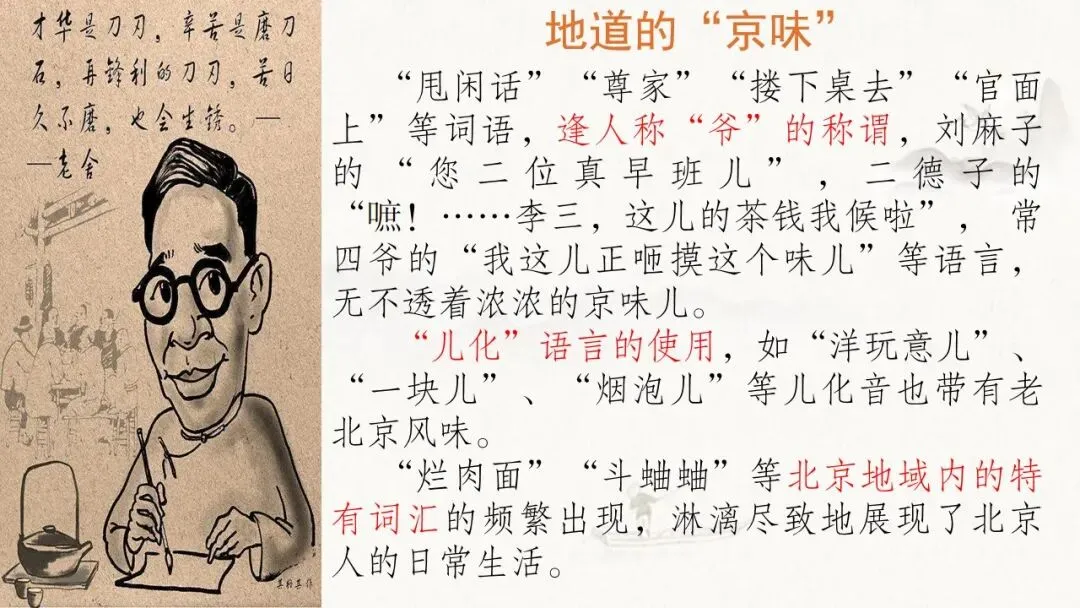 才华是刀刃，辛苦是磨刀
石，再锋利的刀刃，若日
久不磨，也会生锈。—
—老舍
地道的“京味”
“甩闲话”“尊家”“搂下桌去”“官面
上”等词语，逢人称“爷”的称谓，刘麻子
的“您二位真早班儿”，二德子的
“嗻！……李三，这儿的茶钱我候啦”，常
四爷的“我这儿正咂摸这个味儿”等语言，
无不透着浓浓的京味儿。
“儿化”语言的使用，如“洋玩意儿”、
“一块儿”、“烟泡儿”等儿化音也带有老
北京风味。
“烂肉面”“斗蛐蛐”等北京地域内的特
有词汇的频繁出现，淋漓尽致地展现了北京
人的日常生活。